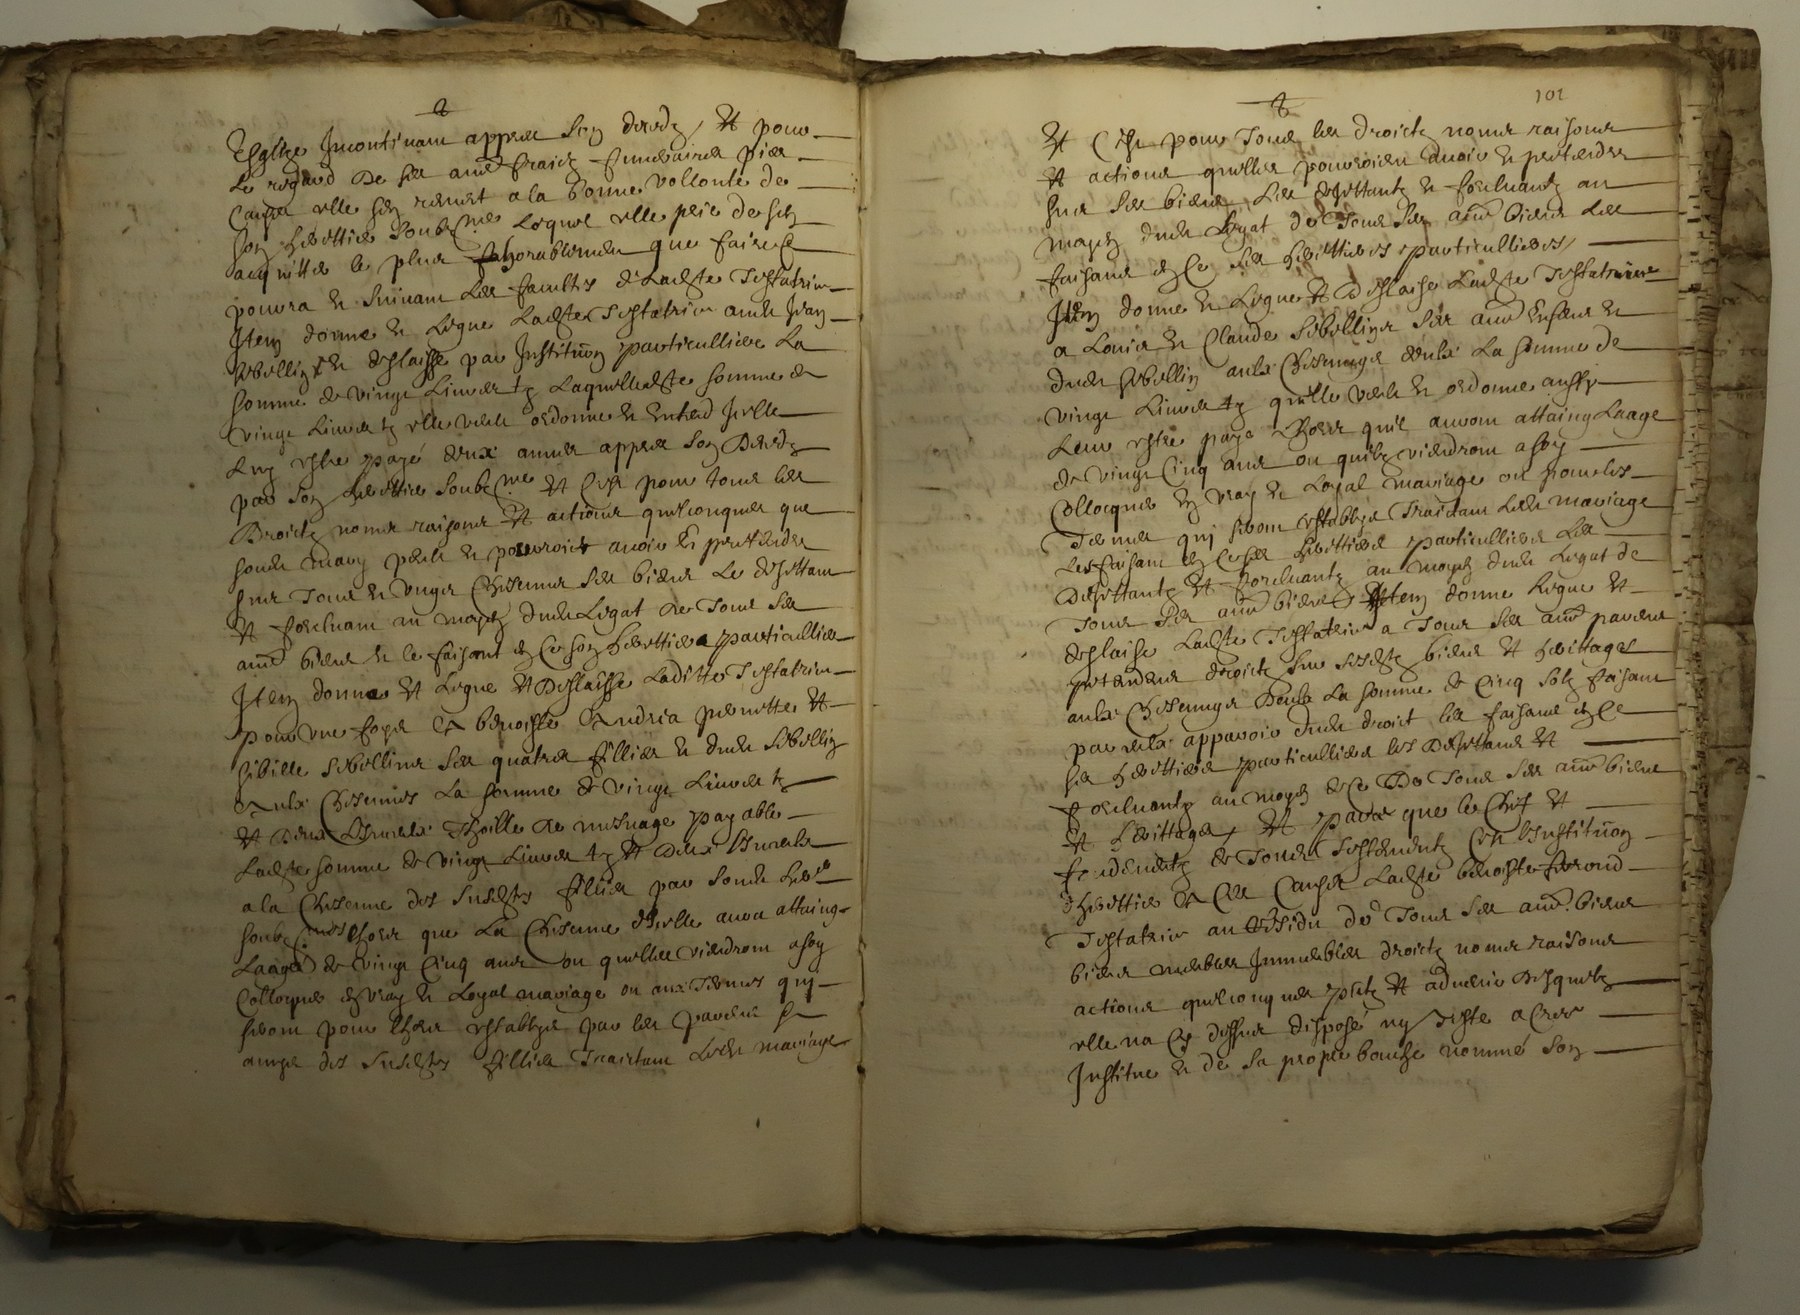 Esglize Incontinant appres son deceds, Et pour
le regard De ses aues fraictz funeraires pies
causes elle sen remest a la bonne vollonté de
son herettier soubz nne lequel elle prie de sen
acquitter le plus fahorablement que faire ce
pourra Et suivant les facultes de Ladite Testatrice
Item donne Et Legue Ladite Testatrice audit Jean
Sibellin Et deslaisse par Institution particulliere La
somme de vingt Livres tz Laquelle dite somme de
vingt Livres tz elle veult ordonne Et Entend Icelle
Luy estre payé deux annees appres son Deceds
par son herettier soubz nne Et C'est pour tous les
Droictz noms raisons Et actions quelconques que
sondit mary peult Et pourroict avoir Et prethendre
sur Tous Et ungs Chescungs ses biens Le dejettant
Et forcluant au moyen dudit Legat de Tous ses
aues biens Et le faisant en Ce son herettier particullier
Item donne Et Legue Et Deslaisse Laditte Testatrice
pour une foys A benoiste Andria pierrette Et
Sibille Sibellines ses quatre fillies Et dudit Sibellin
A ulx Chescunes La somme de vingt Livres tz
Et Deux Lhinceulx Thoille de mesnage payable
Ladite somme de vingt Livres tz Et Deux Lhinceulx
a la Chescune des susdites fillies par sondit here
soubz nne lhors que La Chescune d'Icelle aura attaingt
Laage de vingt Cinq ans ou quelles viendront a soy
Colloquer en vray Et Loyal mariage ou aux Termes quy
seront pour lhors establys par les parens Et
amys des susdites fillies Traictant Ledit mariage
101
Et C'est pour Tous les droictz noms raisons
Et actions quelles pourroient avoir Et prethendre
sur ses biens Les dejettantz Et forcluantz au
moyen dudit Legat de Tous ses aues biens Les
faisant en Ce ses herettieres particullieres
Item donne Et Legue Et deslaisse Ladite Testatrice
a Louis Et Claude Sibellins ses aues Enfans Et
dudit Sibellin aulx Chescungs deulx La somme de
vingt Livres tz quelle veult Et ordonne aussy
Leur estre payé lhors quilz auront attaingt Laage
de vingt Cinq ans ou quilz viendront a soy
Collocquer En vray Et Loyal mariage ou pour les
Termes quj seront establys Traictant Ledit mariage
Les faisant en Ce ses herettiers particulliers Les
Dejettantz Et forcluantz au moyen dudit Legat de
Tous ses aues biens Item donne Legue Et
deslaisse Ladite Testatrice a Tous ses aues parens
pretendans droictz sur sesdits biens Et herittages
aulx Chescungs Deulx La somme de Cinq solz faisant
par eulx apparoir dudit droict les faisant en Ce
ses herettiers particulliers les Dejettant Et
forcluantz au moyen de Ce De Tous ses aues biens
Et herittages Et parce que le Chef Et
fondementz de Tous Testementz Est L'Institution
d'herettier A Ces Causes Ladite benoiste
Testatrice au Residu de Tous ses aues biens
biens meubles Immeubles droictz noms raisons
actions quelconques pntz Et advenir Desquelz
elle na Cy dessus disposé ny Teste a Cree
Institue Et de sa propre bouche nommé son